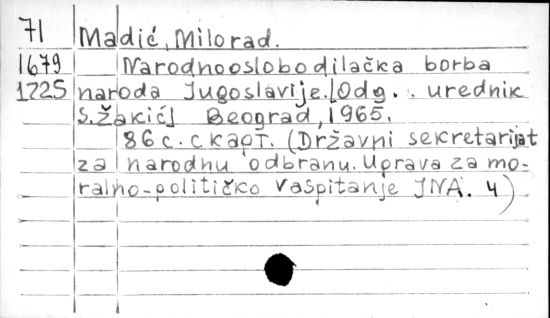 71 Madić, Milorad.
1679 Narodnooslobodilačka borba
1225 naroda Jugoslavije. [Odg. . urednik
S. Žakić] Beograd, 1965.
86 с. с карт. (Državni sekretarijat
za narodnu odbranu. Uprava za mo-
ralno-političko vaspitanje JNA. 4)